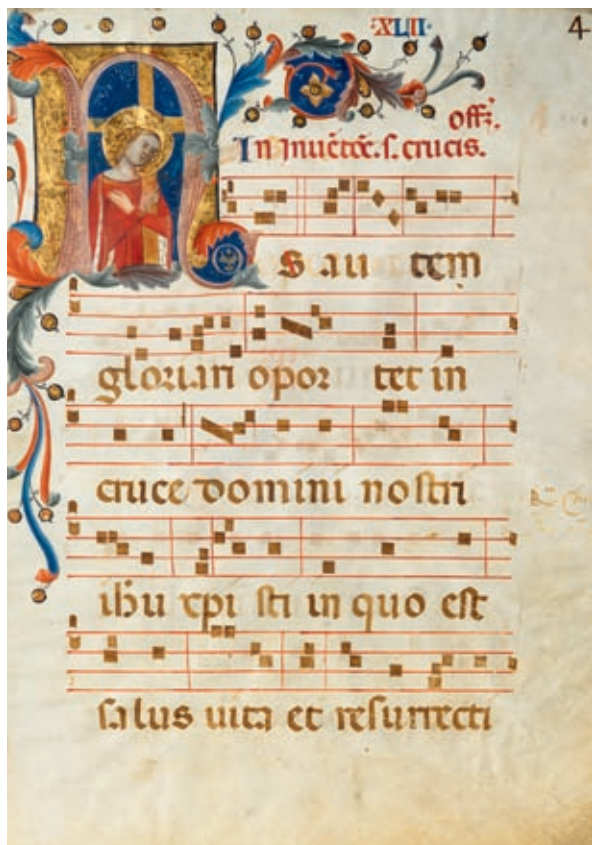 XLII 4
offꝫ.
In inuētōe. s. crucis.
N s au tem
gloriari opor tet in
cruce domini nostri
ihu xpi sti in quo est
salus uita et resurrecti